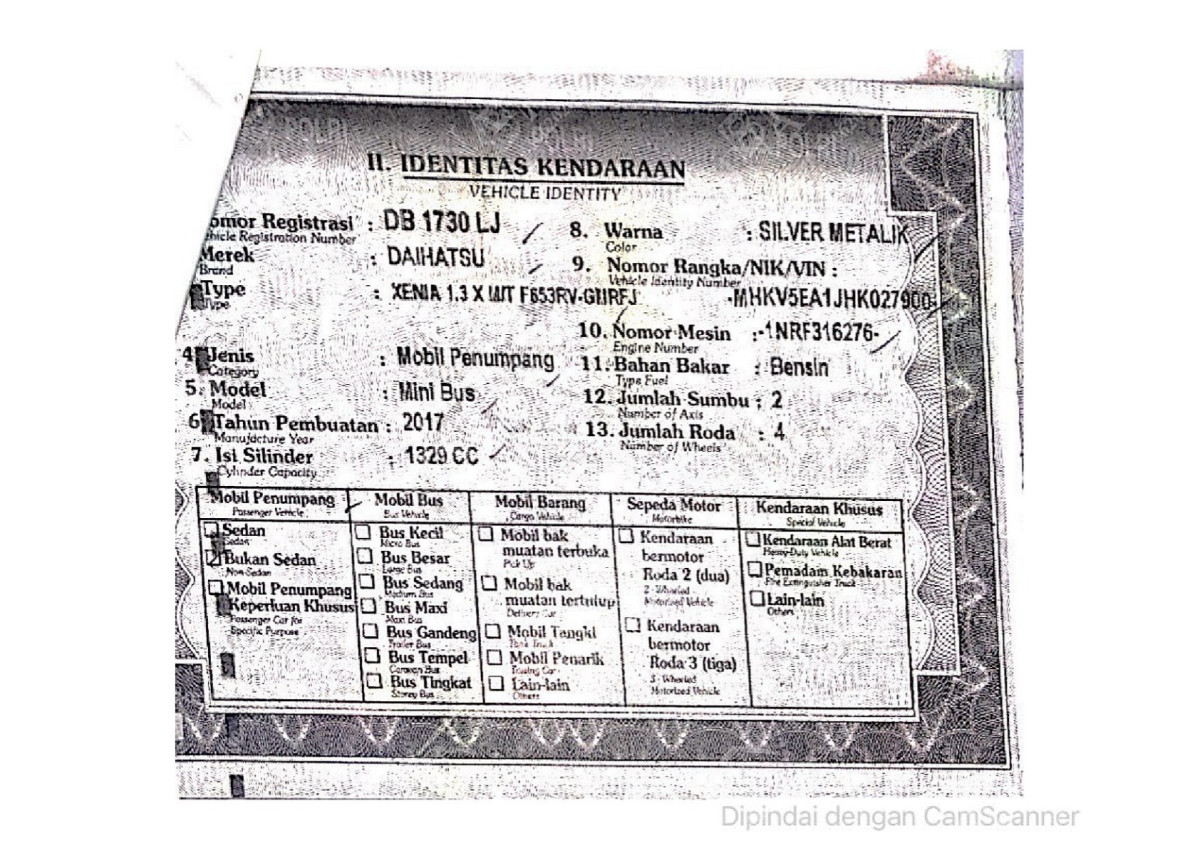 II. IDENTITAS KENDARAAN
VEHICLE IDENTITY
omor Registrasi : DB 1730 LJ
hicle Registration Number
Merek : DAIHATSU
Brand
Type : XENIA 1.3 X M/T F653RV-GMRFJ
Type
4. Jenis : Mobil Penumpang
Category
5. Model : Mini Bus
Model
6. Tahun Pembuatan : 2017
Manufacture Year
7. Isi Silinder : 1329 CC
Cylinder Capacity
8. Warna : SILVER METALIK
Color
9. Nomor Rangka/NIK/VIN :
Vehicle Identity Number
-MHKV5EA1JHK027900-
10. Nomor Mesin : -1NRF316276-
Engine Number
11. Bahan Bakar : Bensin
Type Fuel
12. Jumlah Sumbu : 2
Number of Axis
13. Jumlah Roda : 4
Number of Wheels
Mobil Penumpang
Passenger Vehicle
Sedan
Sedan
Bukan Sedan
Non Sedan
Mobil Penumpang
Keperluan Khusus
Passenger Car for
Specific Purpose
Mobil Bus
Bus Vehicle
Bus Kecil
Micro Bus
Bus Besar
Large Bus
Bus Sedang
Medium Bus
Bus Maxi
Maxi Bus
Bus Gandeng
Trailer Bus
Bus Tempel
Caravan Bus
Bus Tingkat
Storey Bus
Mobil Barang
Cargo Vehicle
Mobil bak
muatan terbuka
Pick Up
Mobil bak
muatan tertutup
Delivery Car
Mobil Tangki
Tank Truck
Mobil Penarik
Towing Car
Lain-lain
Others
Sepeda Motor
Motorbike
Kendaraan
bermotor
Roda 2 (dua)
2 - Wheeled
Motorized Vehicle
Kendaraan
bermotor
Roda 3 (tiga)
3 - Wheeled
Motorized Vehicle
Kendaraan Khusus
Special Vehicle
Kendaraan Alat Berat
Heavy-Duty Vehicle
Pemadam Kebakaran
Fire Extinguisher Truck
Lain-lain
Others
Dipindai dengan CamScanner